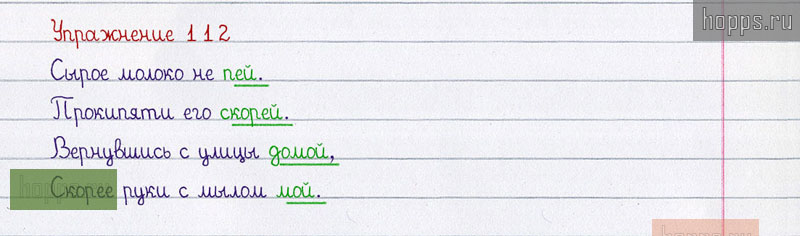 hopps.ru
Упражнение 112
Сырое молоко не пей.
Прокипяти его скорей.
Вернувшись с улицы домой,
Скорее руки с мылом мой.